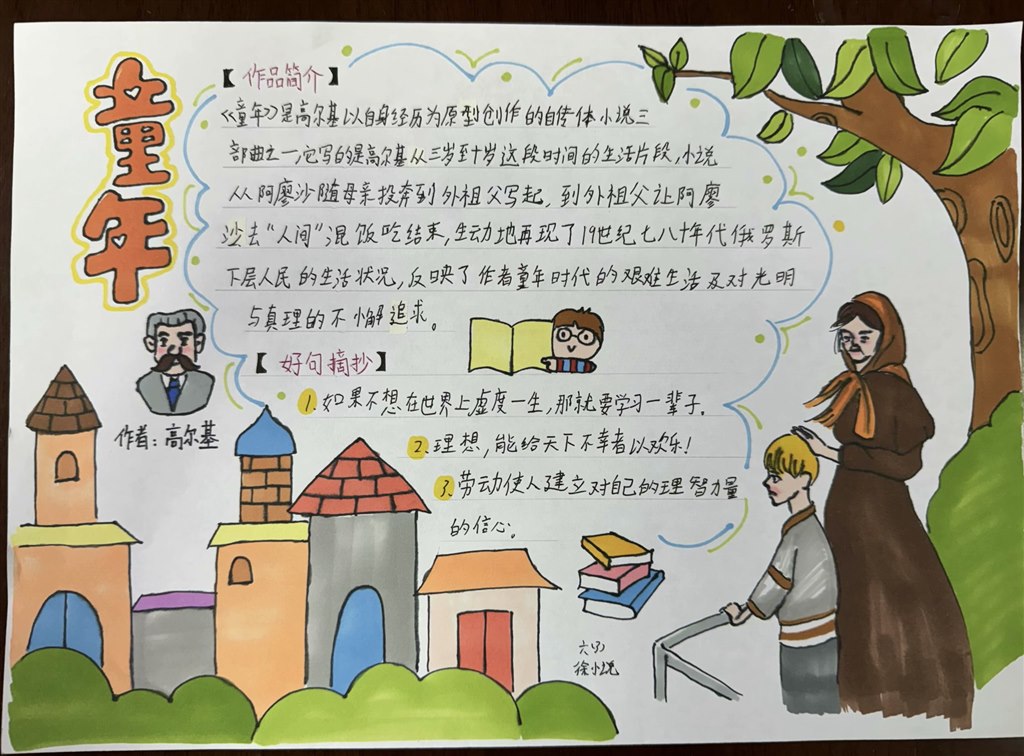 童年
【作品简介】
《童年》是高尔基以自身经历为原型创作的自传体小说三
部曲之一,它写的是高尔基从三岁至十岁这段时间的生活片段,小说
从阿廖沙随母亲投奔到外祖父写起,到外祖父让阿廖
沙去“人间”混饭吃结束,生动地再现了19世纪七八十年代俄罗斯
下层人民的生活状况,反映了作者童年时代的艰难生活及对光明
与真理的不懈追求。
【好句摘抄】
1.如果不想在世界上虚度一生,那就要学习一辈子。
2.理想,能给天下不幸者以欢乐!
3.劳动使人建立对自己的理智力量
的信心。
作者:高尔基